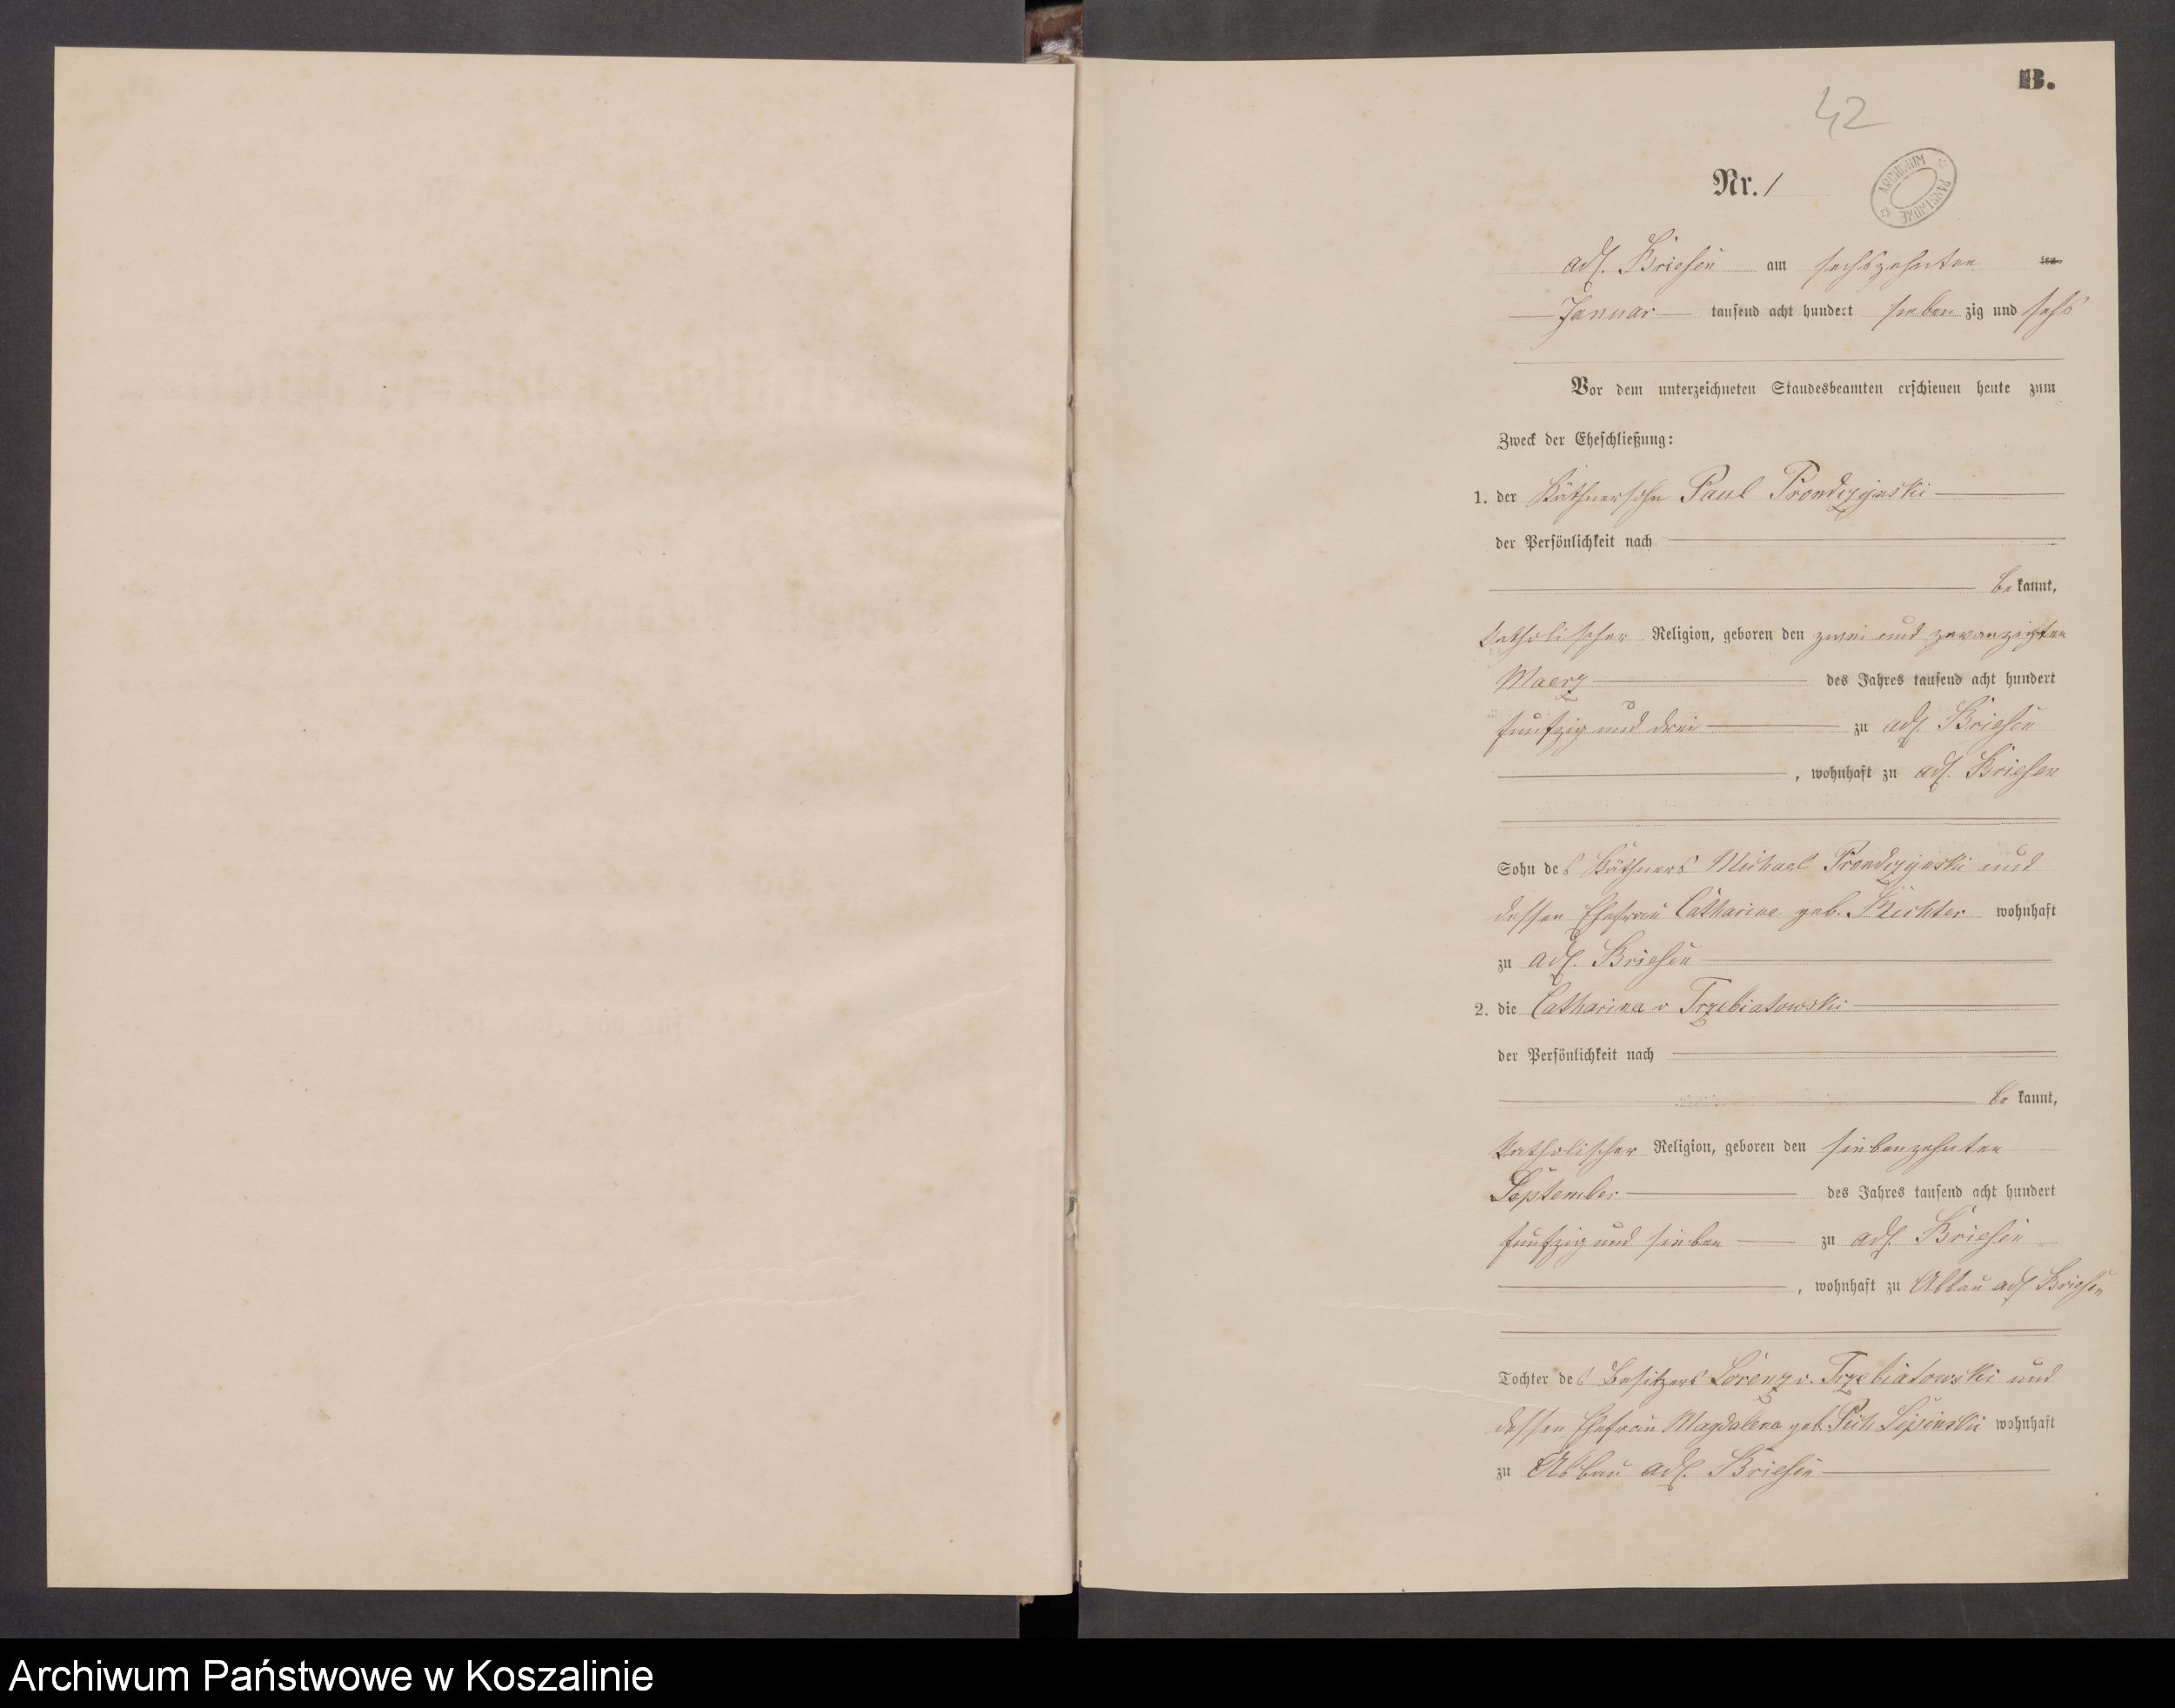 B.
42
Nr. 1
ARCHIWUM PAŃSTWOWE
adl. Briesen am sechszehnten ten
Januar tausend acht hundert sieben zig und sechs
Vor dem unterzeichneten Standesbeamten erschienen heute zum
Zweck der Eheschließung:
1. der Käthnersohn Paul Prondzynski
der Persönlichkeit nach
be kannt,
katholischer Religion, geboren den zwei und zwanzigsten
Maerz des Jahres tausend acht hundert
funfzig und drei zu adl. Briesen
, wohnhaft zu adl. Briesen
Sohn des Käthners Michael Prondzynski und
dessen Ehefrau Catharine geb. Richter wohnhaft
zu adl. Briesen
2. die Catharina v Trzebiatowski
der Persönlichkeit nach
be kannt,
katholischer Religion, geboren den siebenzehnten
September des Jahres tausend acht hundert
funfzig und sieben zu adl. Briesen
, wohnhaft zu Abbau adl Briesen
Tochter des Besitzers Lorenz v. Trzebiatowski und
dessen Ehefrau Magdalena geb. Lipinski wohnhaft
zu Abbau adl. Briesen
Archiwum Państwowe w Koszalinie